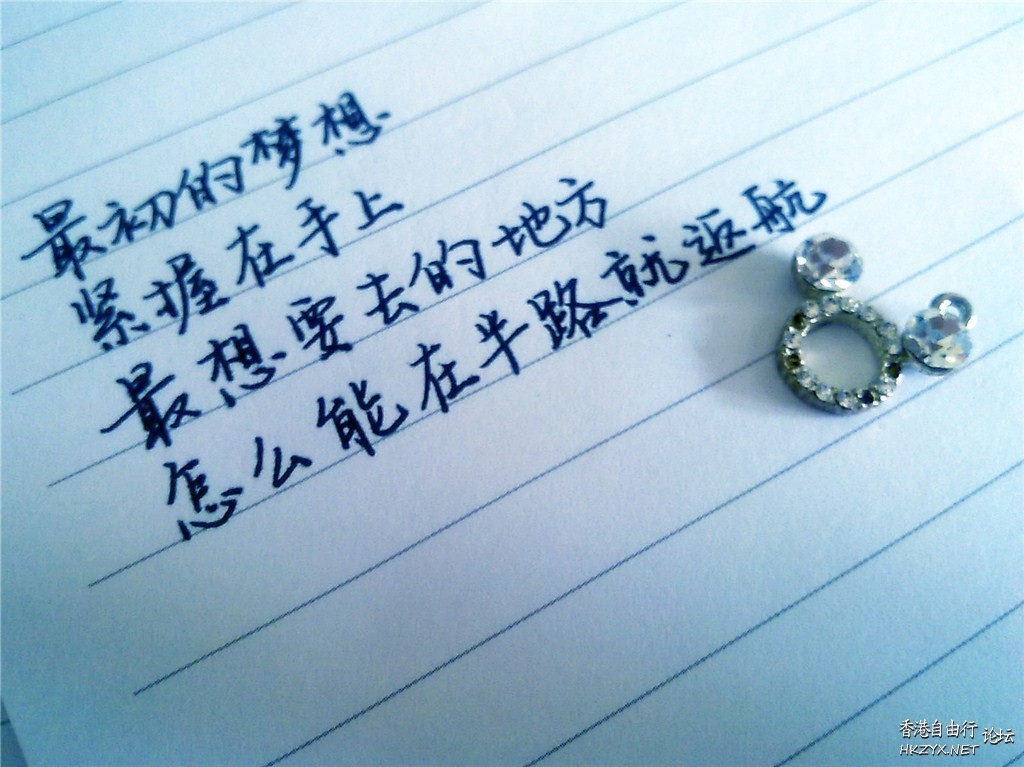 最初的梦想
紧握在手上
最想要去的地方
怎么能在半路就返航
香港自由行 论坛
HKZYX.NET